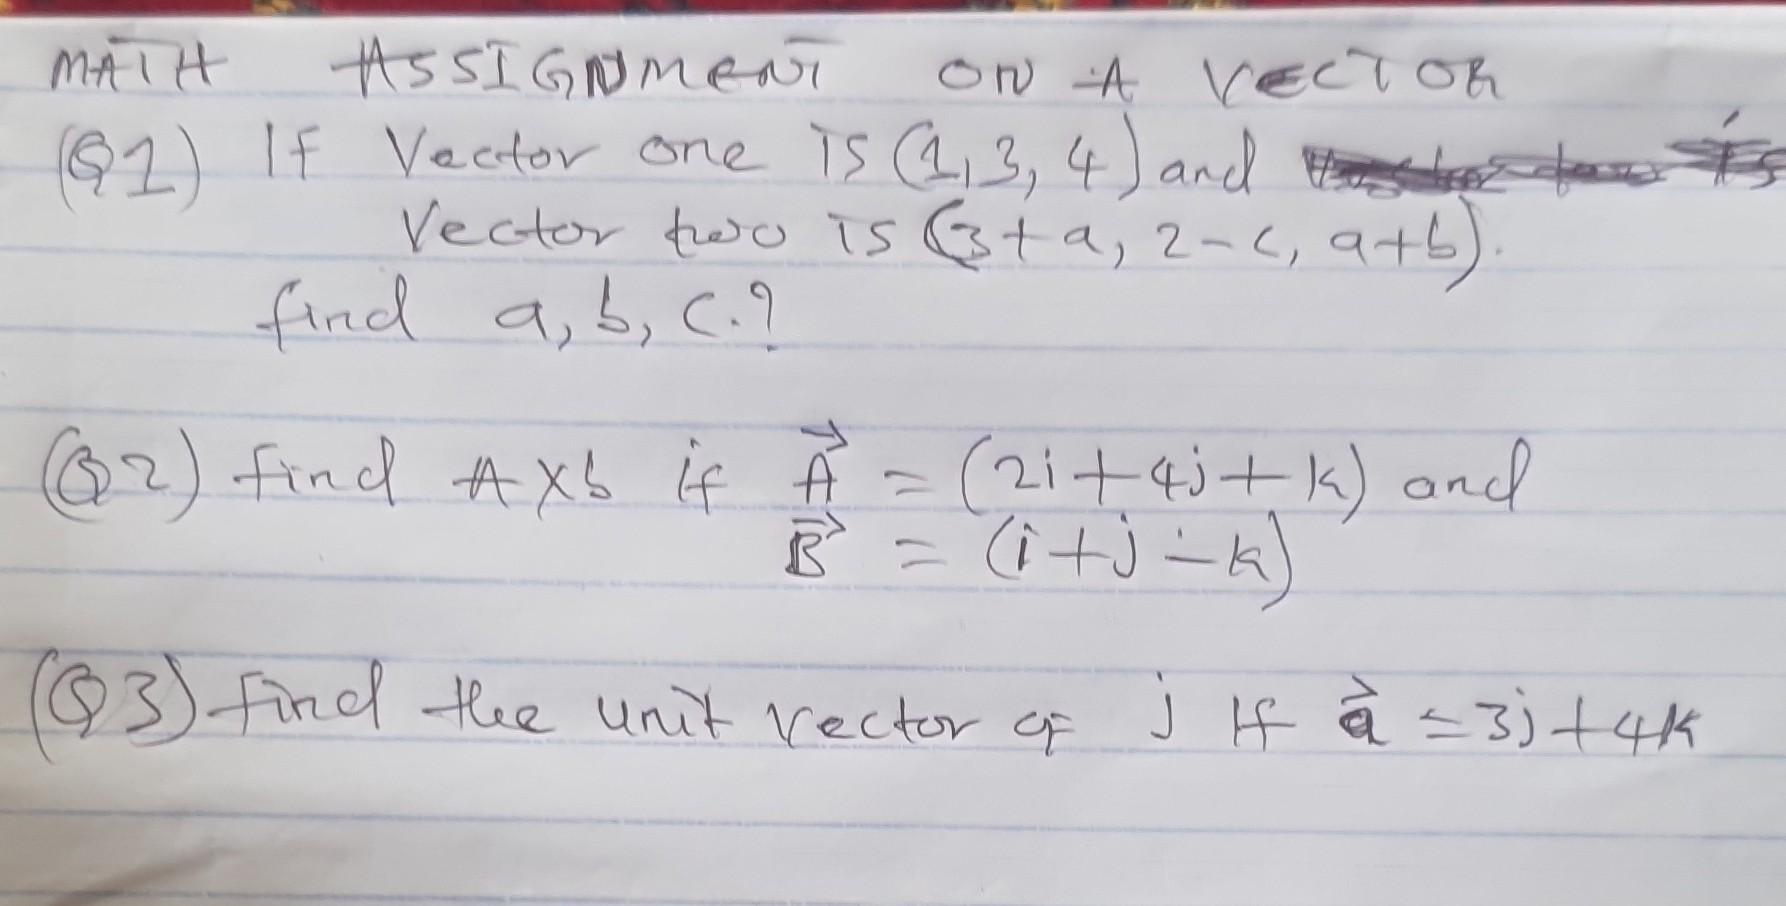 MATH ASSIGNMENT ON A VECTOR
(Q1) If Vector one is (1,3,4) and is
Vector two is (3+a, 2-c, a+b).
find a, b, c.?
(Q2) find A×b if A⃗ = (2i+4j+k) and
B⃗ = (i+j-k)
(Q3) find the unit vector of j If a⃗ =3j+4k